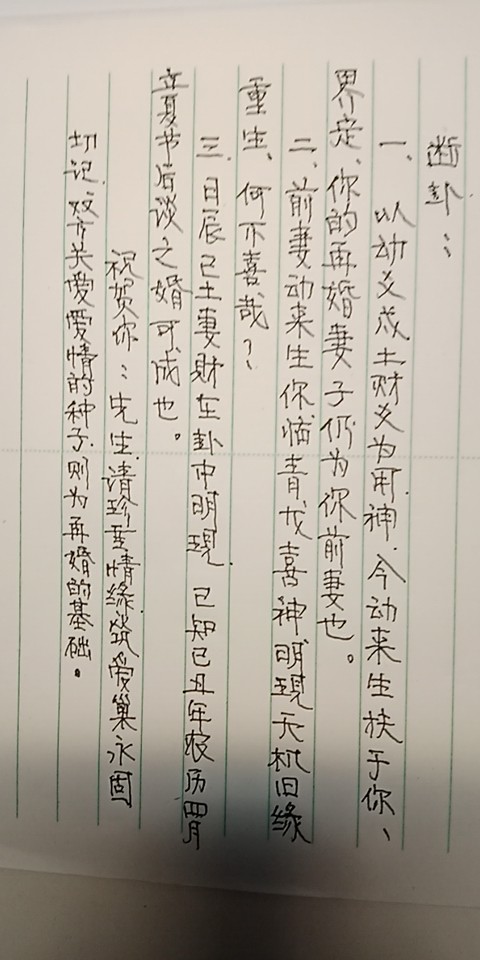 断卦：
一、以动爻戌土财爻为用神．今动来生扶于你、
界定、你的再婚妻子仍为你前妻也。
二、前妻动来生你临青龙喜神明现天机旧缘
重生、何不喜哉？
三．日辰已土妻财在卦中明现．已知已丑年农历四月
立夏节后谈之婚可成也。
祝贺你：先生．请珍重情缘．筑爱巢永固
切记．双方关爱爱情的种子．则为再婚的基础。